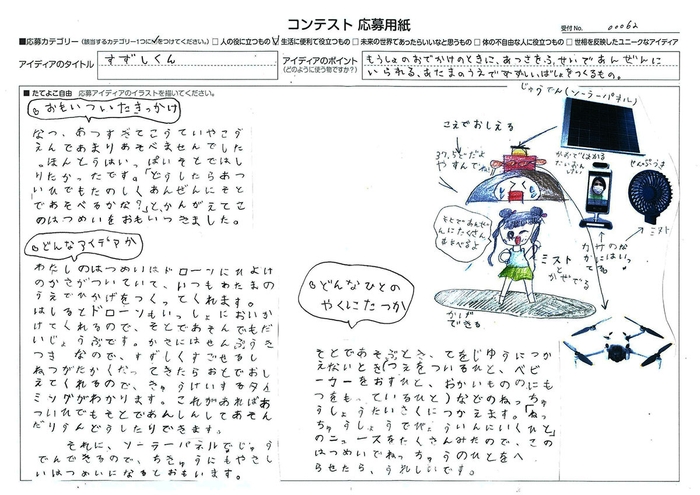 コンテスト 応募用紙
受付No. 00062
■応募カテゴリー（該当するカテゴリー1つに✓をつけてください。） □ 人の役に立つもの ☑ 生活に便利で役立つもの □ 未来の世界であったらいいなと思うもの □ 体の不自由な人に役立つもの □ 世相を反映したユニークなアイディア
アイディアのタイトル
すずしくん
アイディアのポイント
（どのように使う物ですか？）
もうしょのおでかけのときに、あつさをふせいであんぜんに
いられる、あたまのうえですずしいばしょをつくるもの。
■ たてよこ自由 応募アイディアのイラストを描いてください。
おもいついたきっかけ
なつ、あつすぎてこうていやこう
えんであまりあそべませんでした
。ほんとうはいっぱいそとではし
りたかったです。「どうしたらあつ
いひでもたのしくあんぜんにそと
であそべるかな？」と、かんがえてこ
のはつめいをおもいつきました。
どんなアイデアか
わたしのはつめいはドローンにひよけ
のかさがついていて、いつもわたまの
うえでひかげをつくってくれます。
はしるとドローンもいっしょにおいか
けてくれるので、そとであそんでもだ
いじょうぶです。かさにはせんぷうき
つき なので、すずしくすごせるし
ねつがたかくなってきたらおとでおし
えてくれるので、きゅうけいするタイ
ミングがわかります。これがあればあ
ついひでもそとであんしんしてあそん
だりうんどうしたりできます。
それに、ソーラーパネルでじゅう
でんできるので、ちきゅうにもやさし
いはつめいになるとおもいます。
じゅうでん(ソーラーパネル)
こえでおしえる
37.5どだよ
やすんでね!
かおではかる
たいおんけい
せんぷうき
ミスト
そとであんぜんにたくさん
あそべるよ
ミスト
と
かぜがでる
かさのなかにはいってる
かげが
できる
どんなひとの
やくにたつか
そとであそぶとき、てをじゆうにつか
えないとき(つえをついるひと、ベビ
ーカーをおすひと、おかいもののにも
つをもっているひと)などのねっちゅ
うしょうたいさくにつかえます。「ねっ
ちゅうしょうでびょういんにいくひと」
のニュースをたくさんみたので、この
はつめいでねっちゅうのひとをへ
らせたら、うれしいです。